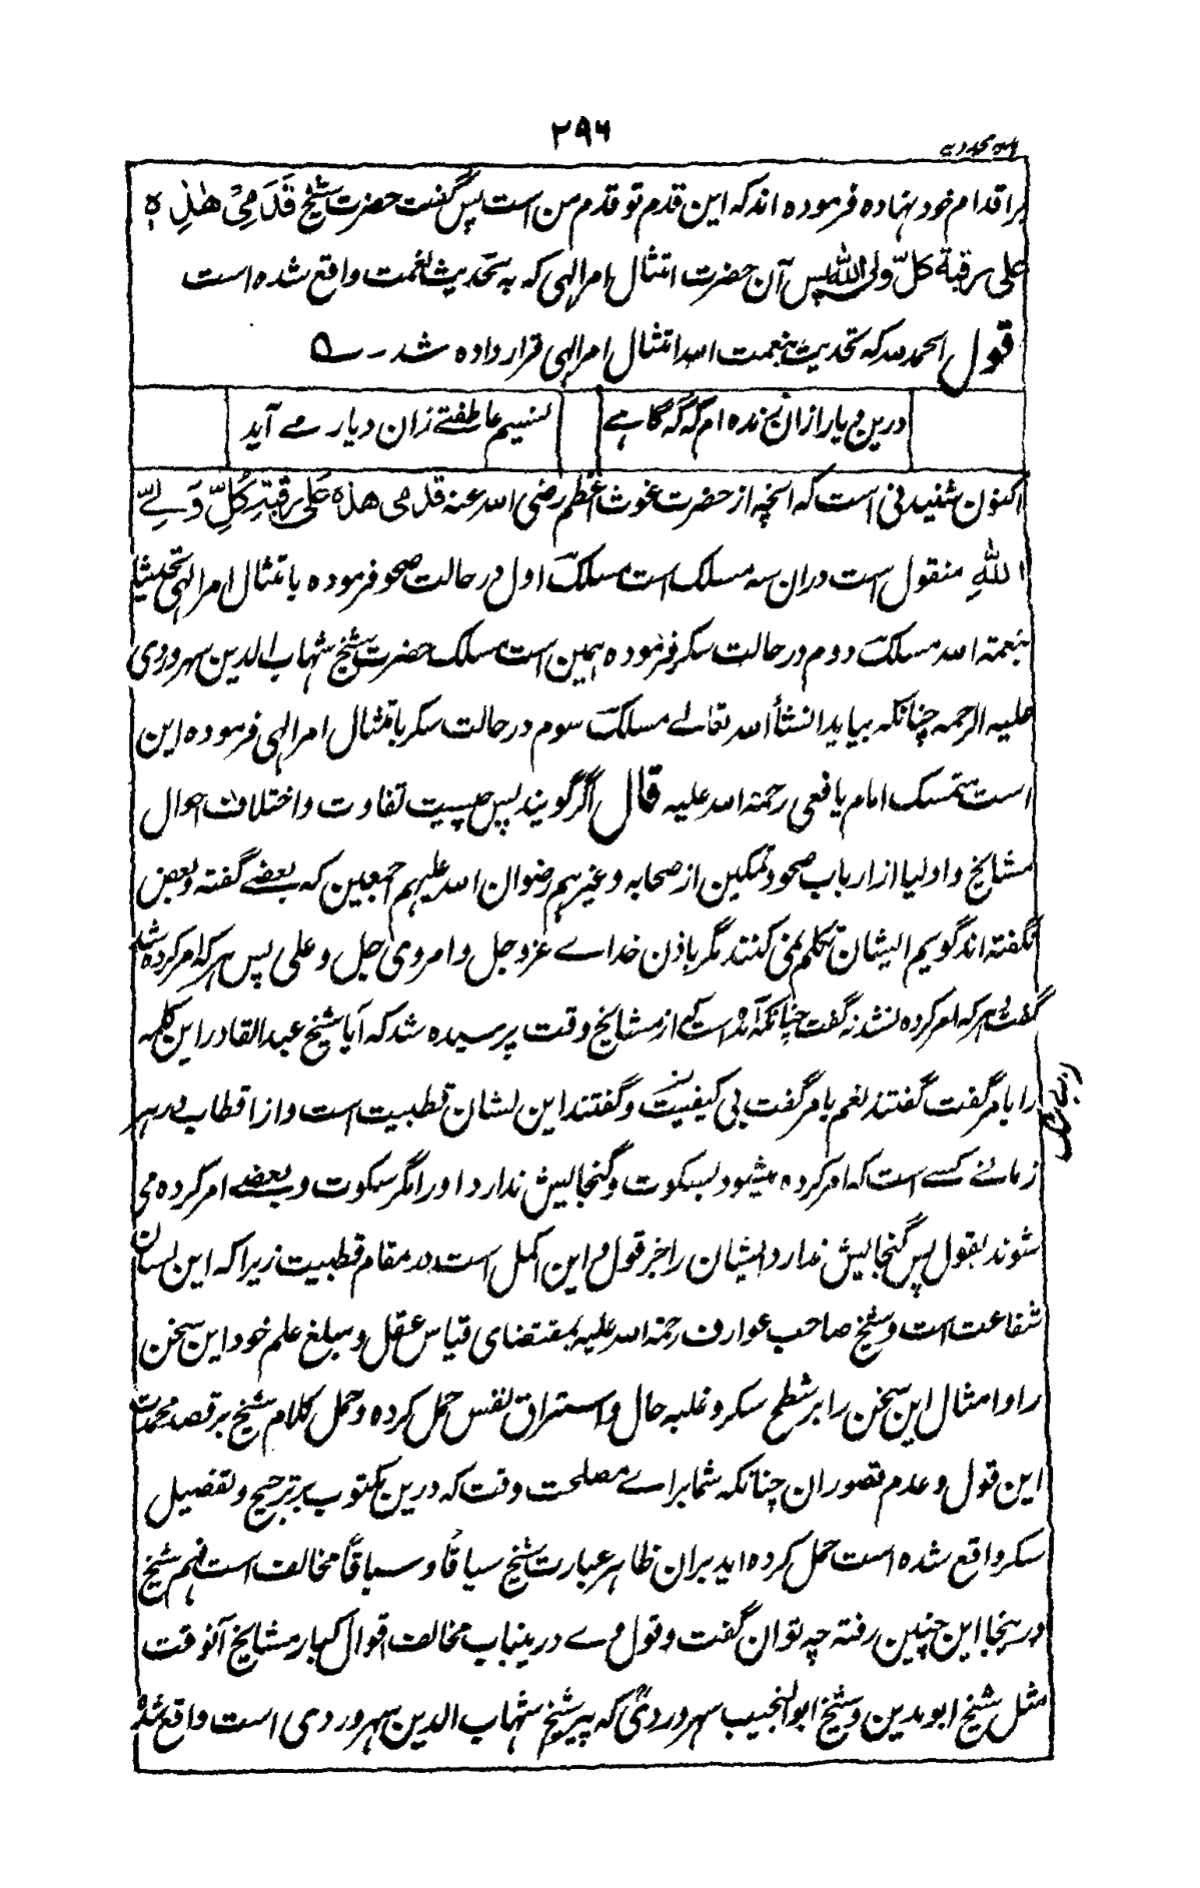 ۲۹۶
بر اقدام خود نهاده فرموده اند که این قدم تو قدم من است پس گفت حضرت شیخ قَدَمِیْ هٰذِهٖ
علی رقبة کلّ ولی الله پس آن حضرت امتثال امر الهی که به تحدیث نعمت واقع شده است
قول الحمد لله که تحدیث بنعمت الله امتثال امر الهی قرار داده شد
درین دیار ازان زنده ام که گه گاهے
نسیم عاطفتے زان دیار مے آید
اکنون شنیدنی است که آنچه از حضرت غوث اعظم رضی الله عنه قدمی هذه عَلی رقبةِ کُلِّ وَلِیِّ
اللهِ منقول ست دران سه مسلک است مسلک اول در حالت صحو فرموده بامتثال امر الهی تحدیثا
بنعمة الله مسلک دوم در حالت سکر فرموده همین است مسلک حضرت شیخ شهاب الدین سهروردی
علیه الرحمه چنانکه بیاید انشأ الله تعالے مسلک سوم در حالت سکر بامتثال امر الهی فرموده این
است متمسک امام یافعی رحمة الله علیه قال اگر گویند پس چیست تفاوت و اختلاف احوال
مشایخ و اولیا از ارباب صحو و تمکین از صحابه و غیرهم رضوان الله علیهم اجمعین که بعضے گفته و بعض
نگفته اند گویم ایشان تکلم نمی کنند مگر باذن خداے عز و جل و امر وی جل و علی پس هر که امر کرده شد
گفت و هر که امر کرده نشد نه گفت چنانکه آمده است که از مشایخ وقت پرسیده شد که آیا شیخ عبد القادر این کلمه
را بامر گفت گفتند نعم بامر گفت بی کیفیت و گفتند این نشان قطبیت است و از اقطاب در هر
زمانے کسے است که امر کرده میشود بسکوت و گنجایش ندارد او را مگر سکوت و بعضے امر کرده می
شوند بقول پس گنجایش ندارد ایشان را جز قول و این اکمل است در مقام قطبیت زیرا که این لسان
شفاعت است و شیخ صاحب عوارف رحمة الله علیه بمقتضای قیاس عقل و مبلغ علم خود این سخن
را و امثال این سخن را بر شطح سکر و غلبه حال و استراق نفس حمل کرده و حمل کلام شیخ بر قصد
این قول و عدم قصور ان چنانکه شما براے مصلحت وقت که درین مکتوب بر ترجیح و تفضیل
سکر واقع شده است حمل کرده اید بران ظاهر عبارت شیخ سیاقًا و سباقًا مخالف است فهم شیخ
درینجا این چنین رفته چه توان گفت و قول وے درینباب مخالف اقوال کبار مشایخ آنوقت
مثل شیخ ابو مدین و شیخ ابو النجیب سهروردیؒ که پیر شیخ شهاب الدین سهروردی است واقع شده